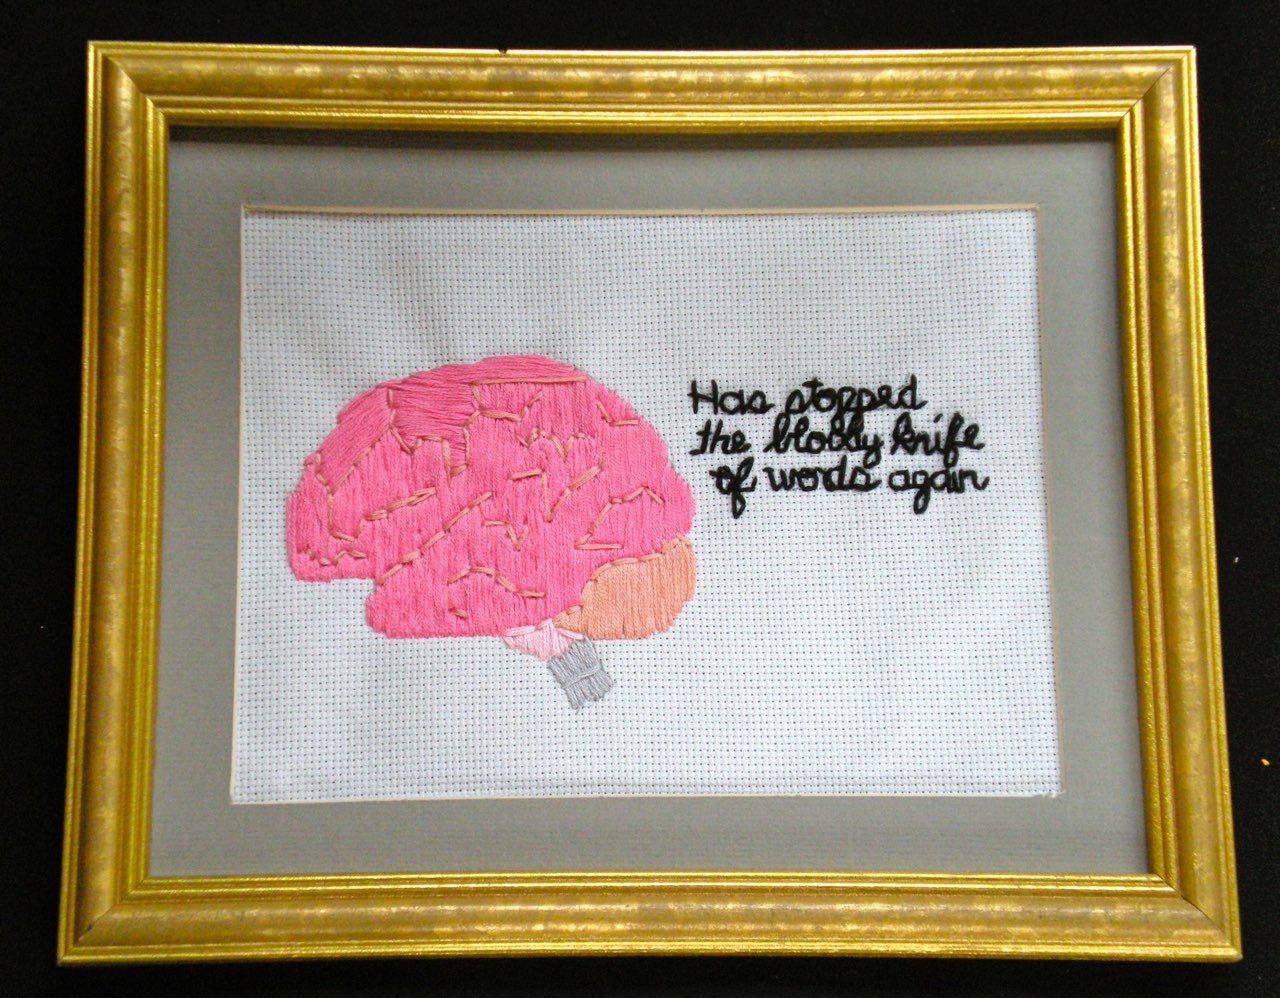 Has stopped
the bloody knife
of words again